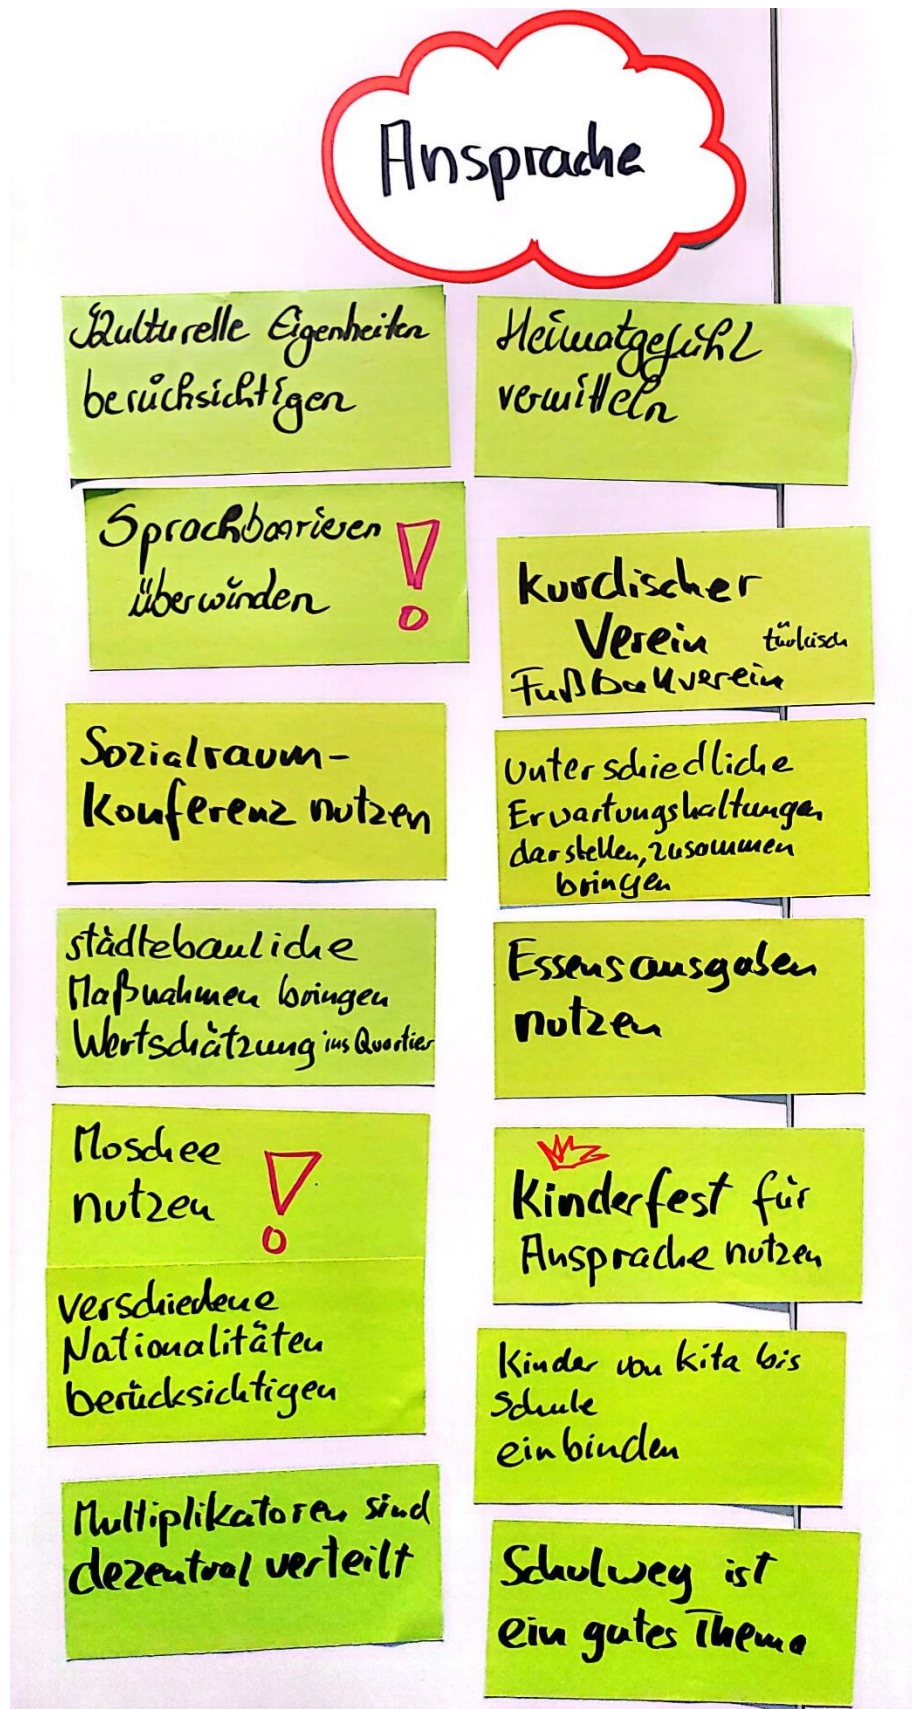 Ansprache
Kulturelle Eigenheiten
berücksichtigen
Sprachbarrieren
überwinden
Sozialraum-
Konferenz nutzen
städtebauliche
Maßnahmen bringen
Wertschätzung ins Quartier
Moschee
nutzen
verschiedene
Nationalitäten
berücksichtigen
Multiplikatoren sind
dezentral verteilt
Heimatgefühl
vermitteln
kurdischer
Verein türkisch
Fußballverein
Unterschiedliche
Erwartungshaltungen
darstellen, zusammen
bringen
Essensausgaben
nutzen
Kinderfest für
Ansprache nutzen
Kinder von Kita bis
Schule
einbinden
Schulweg ist
ein gutes Thema